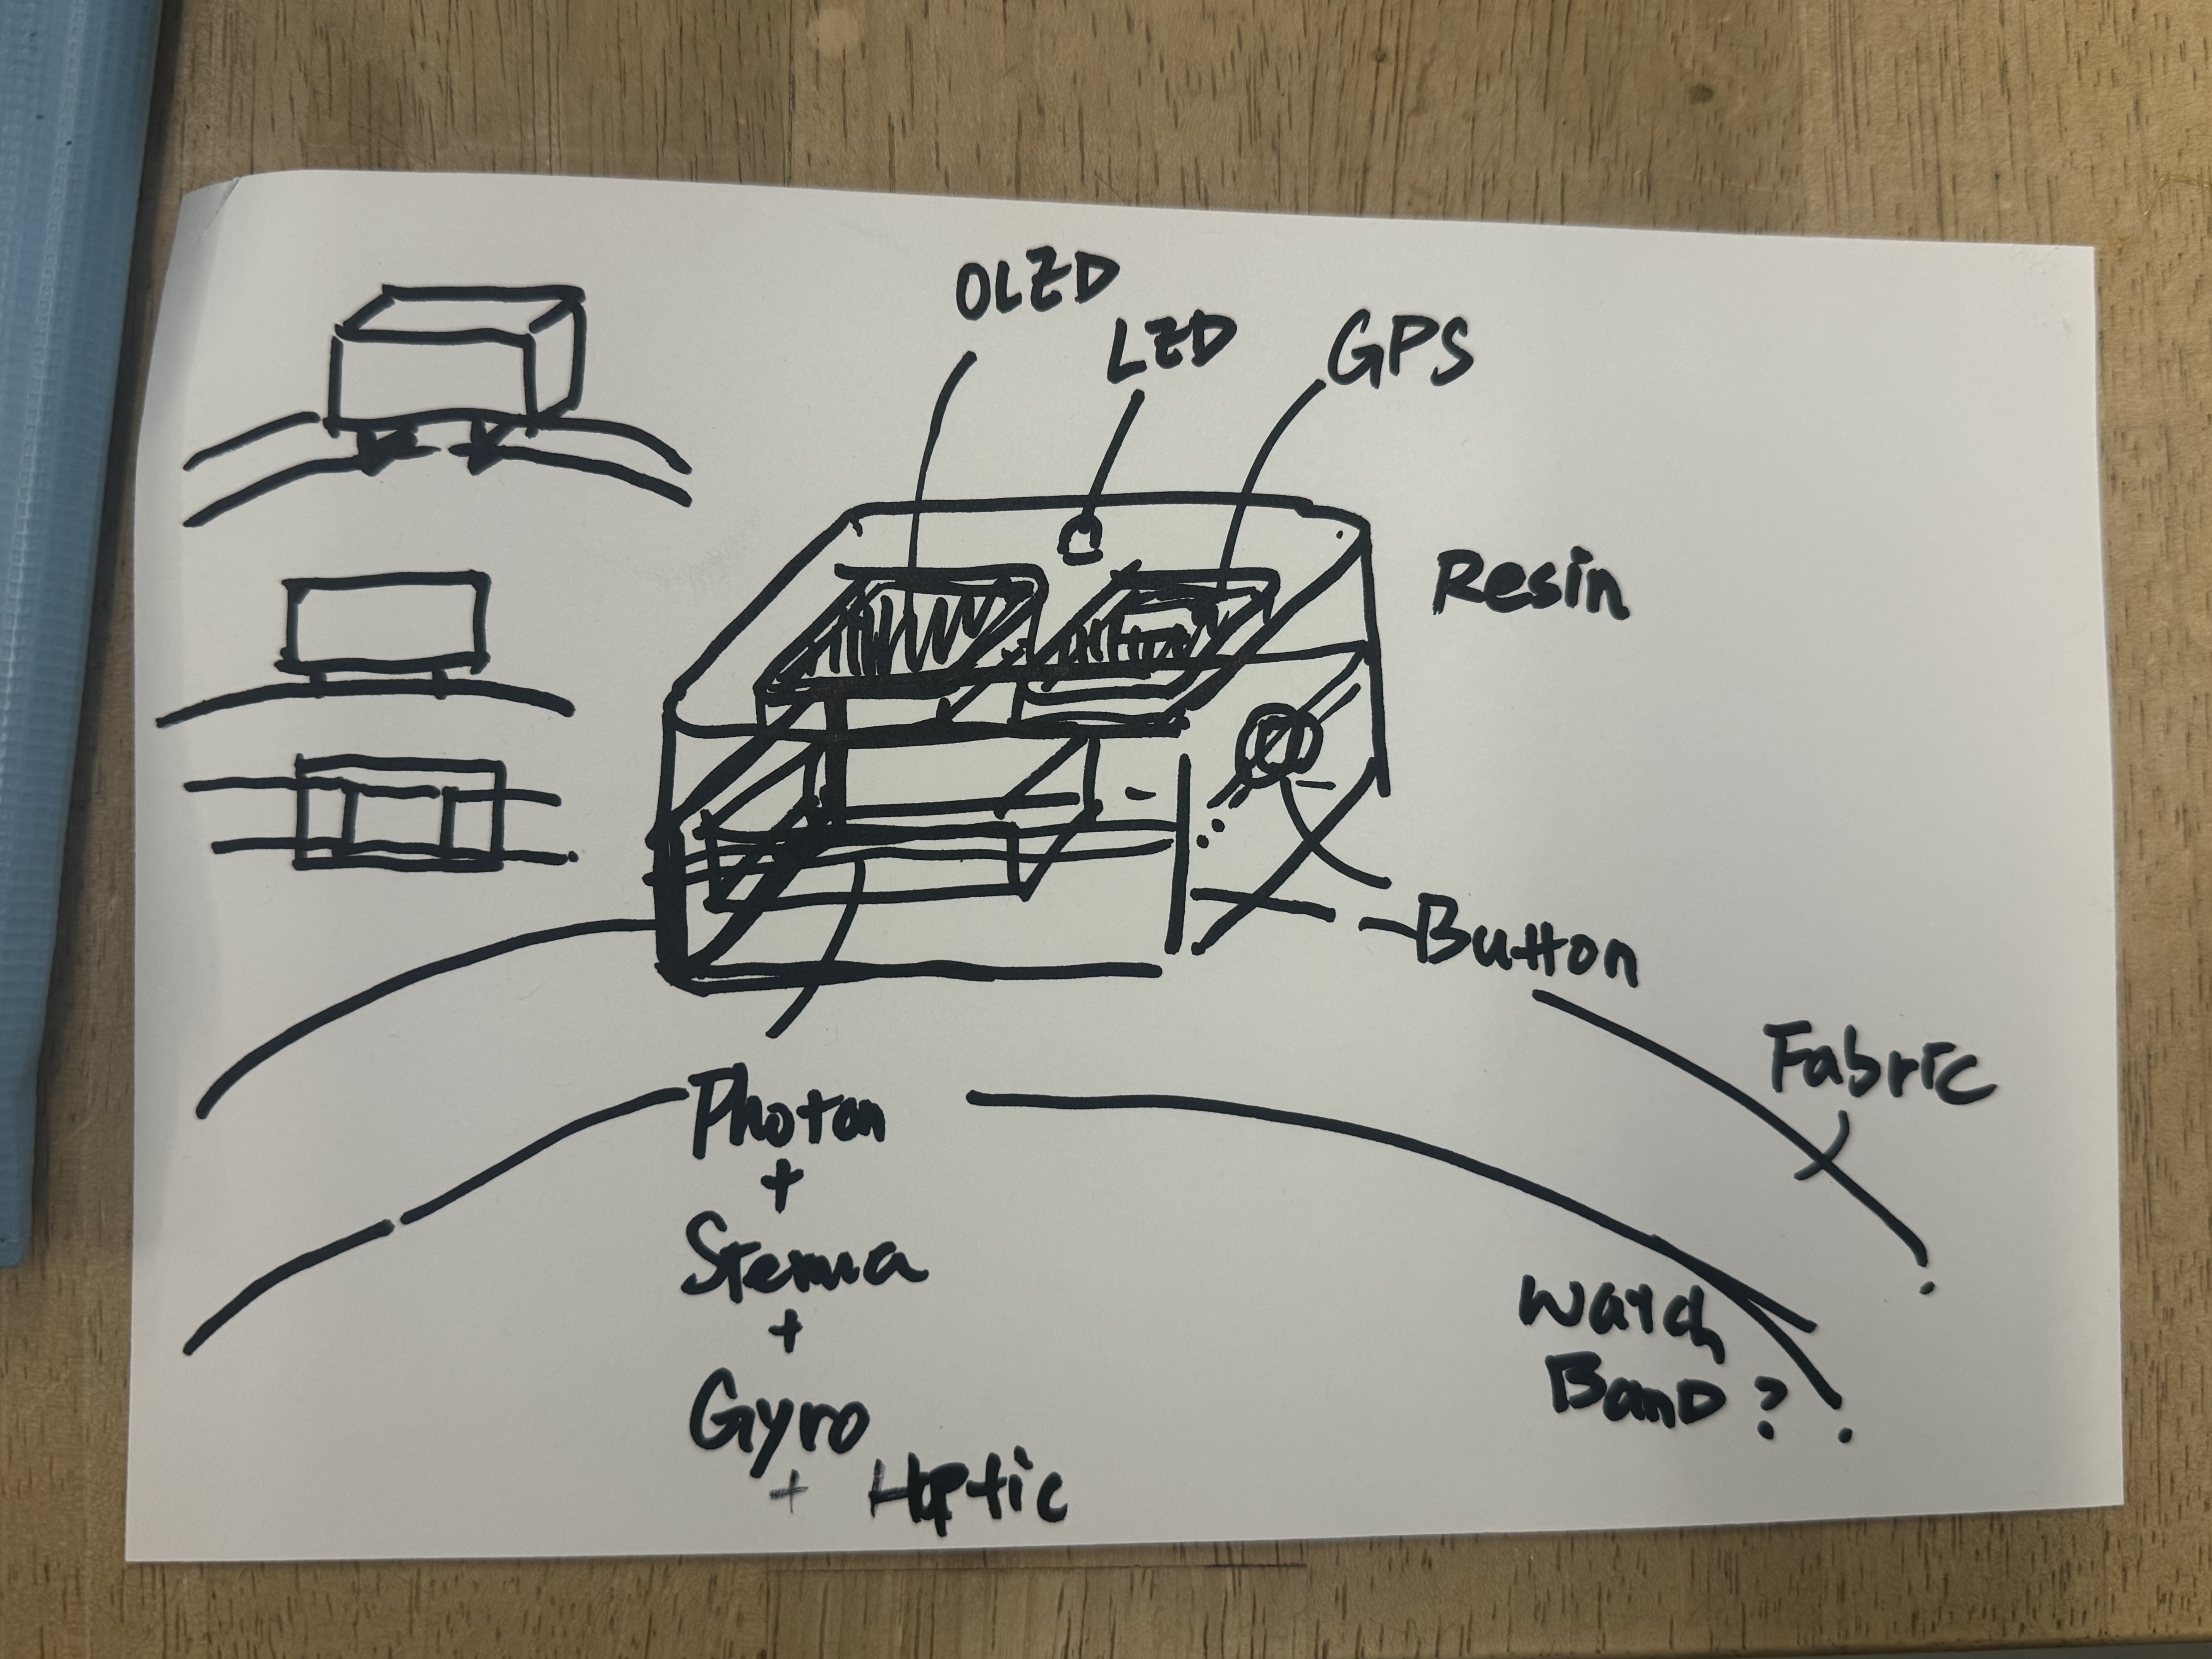 OLED
LED
GPS
Resin
Button
Fabric
Photon
+
Stemma
+
Gyro
+ Haptic
Watch
Band?